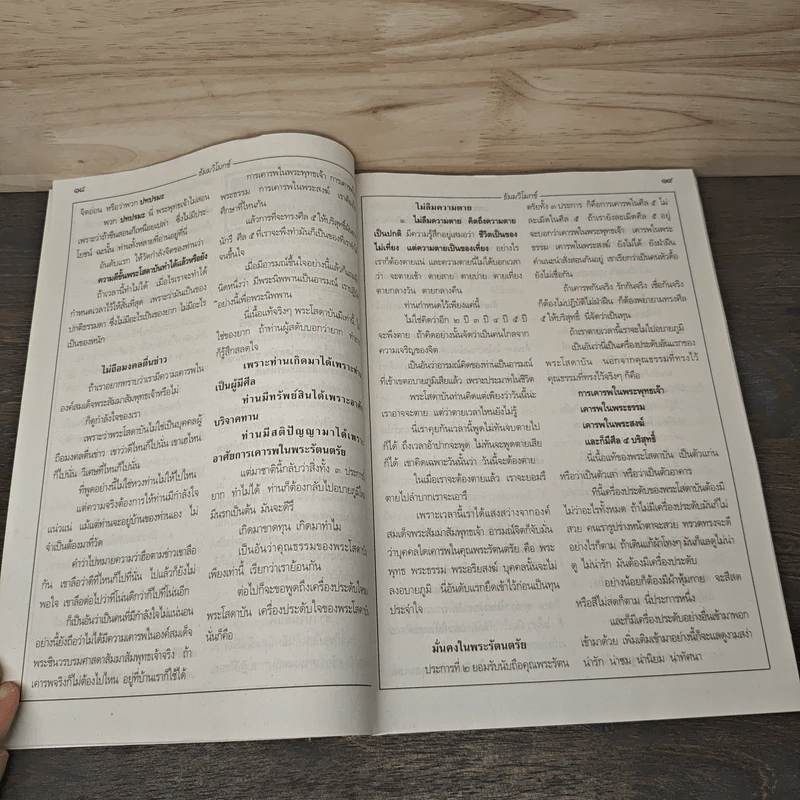 ๑๘
ธัมมวิโมกข์
จิตอ่อน หรือว่าพวก ปทปรมะ
พวก ปทปรมะ นี่ พระพุทธเจ้าไม่สอน
เพราะว่าถ้าขืนสอนก็เหนื่อยเปล่า ซึ่งไม่มีประ-
โยชน์ ฉะนั้น ท่านทั้งหลายที่อ่านอยู่นี่
อันดับแรก ให้วัดกำลังจิตของท่านว่า
ความดีชั้นพระโสดาบันทำได้แล้วหรือยัง
ถ้าเวลานี้ทำไม่ได้ เมื่อไรเราจะทำได้
กำหนดเวลาไว้ให้สั้นที่สุด เพราะว่ามันเป็นของ
ปกติธรรมดา ซึ่งไม่มีอะไรเป็นของยาก ไม่มีอะไร
เป็นของหนัก
ไม่ถือมงคลตื่นข่าว
ถ้าเราอยากทราบว่าเรามีความเคารพใน
องค์สมเด็จพระสัมมาสัมพุทธเจ้าหรือไม่
ก็ดูกำลังใจของเรา
เพราะว่าพระโสดาบันไม่ใช่เป็นบุคคลผู้
ถือมงคลตื่นข่าว เขาว่าดีไหนก็ไปนั่น เขาเฮไหน
ก็ไปนั่น วิเศษที่ไหนก็ไปนั่น
ที่พูดอย่างนี้ไม่ใช่หวงท่านไม่ให้ไปไหน
แต่ความจริงต้องการให้ท่านมีกำลังใจ
แน่วแน่ แม้แต่ท่านจะอยู่บ้านของท่านเอง ไม่
จำเป็นต้องมาที่วัด
คำว่าไปหมายความว่าฮือตามข่าวเขาลือ
กัน เขาลือว่าดีที่ไหนก็ไปที่นั่น ไปแล้วก็ยังไม่
พอใจ เขาลือต่อไปว่าที่โน่นดีกว่าก็ไปที่นั่นอีก
ก็เป็นอันว่าเป็นคนที่มีกำลังใจไม่แน่นอน
อย่างนี้ยังถือว่าไม่ได้มีความเคารพในองค์สมเด็จ
พระชินวรบรมศาสดาสัมมาสัมพุทธเจ้าจริง ถ้า
เคารพจริงก็ไม่ต้องไปไหน อยู่ที่บ้านเราก็ใช้ได้
การเคารพในพระพุทธเจ้า การเคารพ
พระธรรม การเคารพในพระสงฆ์
ศึกษาที่ไหนกัน
แล้วการที่จะทรงศีล ๕ ให้บริสุทธิ์
นักรึ ศีล ๕ ที่เราจะพึงทำมันก็เป็นของ
จนขึ้นใจ
เมื่อมีอารมณ์ขึ้นใจอย่างนี้แล้วก็
นิดหนึ่งว่า มีพระนิพพานเป็นอารมณ์
อย่างนี้เพื่อพระนิพพาน
นี่เนื้อแท้จริงๆ พระโสดาบันมีเท่านี้
ใช่ของยาก ถ้าท่านผู้สดับบอกว่ายาก
ก็รู้สึกสลดใจ
เพราะท่านเกิดมาได้เพราะท่าน
เป็นผู้มีศีล
ท่านมีทรัพย์สินได้เพราะอาศัย
บริจาคทาน
ท่านมีสติปัญญามาได้เพราะ
อาศัยการเคารพในพระรัตนตรัย
แต่มาชาตินี้กลับว่าสิ่งทั้ง ๓ ประการ
ยาก ทำไม่ได้ ท่านก็ต้องกลับไปอบายภูมิใหม่
มีนรกเป็นต้น มันจะดีรึ
เกิดมาขาดทุน เกิดมาทำไม
เป็นอันว่าคุณธรรมของพระโสดาบัน
เพียงเท่านี้ เรียกว่าเราย้อนกัน
ต่อไปก็จะขอพูดถึงเครื่องประดับใจของ
พระโสดาบัน เครื่องประดับใจของพระโสดาบัน
นั่นก็คือ
ธัมมวิโมกข์
๑๙
ไม่ลืมความตาย
๑. ไม่ลืมความตาย คิดถึงความตาย
เป็นปกติ มีความรู้สึกอยู่เสมอว่า ชีวิตเป็นของ
ไม่เที่ยง แต่ความตายเป็นของเที่ยง อย่างไร
เราก็ต้องตายแน่ และความตายนี่ไม่ได้บอกเวลา
ว่า จะตายเช้า ตายสาย ตายบ่าย ตายเที่ยง
ตายกลางวัน ตายกลางคืน
ท่านกำหนดไว้เพียงแค่นี้
ไม่ใช่คิดว่าอีก ๒ ปี ๓ ปี ๔ ปี ๕ ปี
จะพึงตาย ถ้าคิดอย่างนั้นจัดว่าเป็นคนไกลจาก
ความเจริญของจิต
เป็นอันว่าอารมณ์คิดของท่านเป็นอารมณ์
ที่เข้าเขตอบายภูมิเสียแล้ว เพราะประมาทในชีวิต
พระโสดาบันท่านคิดแต่เพียงว่าวันนี้น่ะ
เราอาจจะตาย แต่ว่าตายเวลาไหนยังไม่รู้
นี่เราคุยกันเวลานี้พูดไม่ทันจบตายไป
ก็ได้ ถึงเวลาอ้าปากจะพูด ไม่ทันจะพูดตายเสีย
ก็ได้ เขาคิดเฉพาะวันนั้นว่า วันนี้จะต้องตาย
ในเมื่อเราจะต้องตายแล้ว เราจะยอมรึ
ตายไปลำบากเราจะเอารึ
เพราะเวลานี้เราได้แสงสว่างจากองค์
สมเด็จพระสัมมาสัมพุทธเจ้า อารมณ์จิตก็จับมัน
ว่าบุคคลใดเคารพในคุณพระรัตนตรัย คือ พระ
พุทธ พระธรรม พระอริยสงฆ์ บุคคลนั้นจะไม่
ลงอบายภูมิ นี่อันดับแรกยึดเข้าไว้ก่อนเป็นทุน
ประจำใจ
มั่นคงในพระรัตนตรัย
ประการที่ ๒ ยอมรับนับถือคุณพระรัตน
ตรัยทั้ง ๓ ประการ ก็คือการเคารพในศีล ๕ ไม่
ละเมิดในศีล ๕ ถ้าเรายังละเมิดศีล ๕ อยู่
จะบอกว่าเคารพในพระพุทธเจ้า เคารพในพระ
ธรรม เคารพในพระสงฆ์ ยังไม่ได้ ยังฝ่าฝืน
คำแนะนำสั่งสอนกันอยู่ เขาเรียกว่าเป็นคนหัวดื้อ
ยังไม่เชื่อกัน
ถ้าเคารพกันจริง รักกันจริง เชื่อกันจริง
ก็ต้องไม่ปฏิบัติไม่ฝ่าฝืน ก็ต้องพยายามทรงศีล
๕ ให้บริสุทธิ์ นี่จัดว่าเป็นทุน
ถ้าเราตายเวลานี้เราจะไม่ไปอบายภูมิ
เป็นอันว่านี่เป็นเครื่องประดับอันแรกของ
พระโสดาบัน นอกจากคุณธรรมที่ทรงไว้
คุณธรรมที่ทรงไว้จริงๆ ก็คือ
การเคารพในพระพุทธเจ้า
เคารพในพระธรรม
เคารพในพระสงฆ์
และก็มีศีล ๕ บริสุทธิ์
นี่เนื้อแท้ของพระโสดาบัน เป็นตัวแก่น
หรือว่าเป็นตัวเสา หรือว่าเป็นตัวอาคาร
ทีนี้เครื่องประดับของพระโสดาบันต้องมี
ไม่ว่าอะไรทั้งหมด ถ้าไม่มีเครื่องประดับมันก็ไม่
สวย คนเรารูปร่างหน้าตาจะสวย ทรวดทรงจะดี
อย่างไรก็ตาม ถ้าเดินแก้ผ้าโทงๆ มันก็แลดูไม่น่า
ดู ไม่น่ารัก มันต้องมีเครื่องประดับ
อย่างน้อยก็ต้องมีผ้าหุ้มกาย จะสีสด
หรือสีไม่สดก็ตาม นี่ประการหนึ่ง
และก็มีเครื่องประดับอย่างอื่นเข้ามาพอก
เข้ามาด้วย เพิ่มเติมเข้ามาอย่างนี้ก็จะแลดูงามสง่า
น่ารัก น่าชม น่านิยม น่าทัศนา